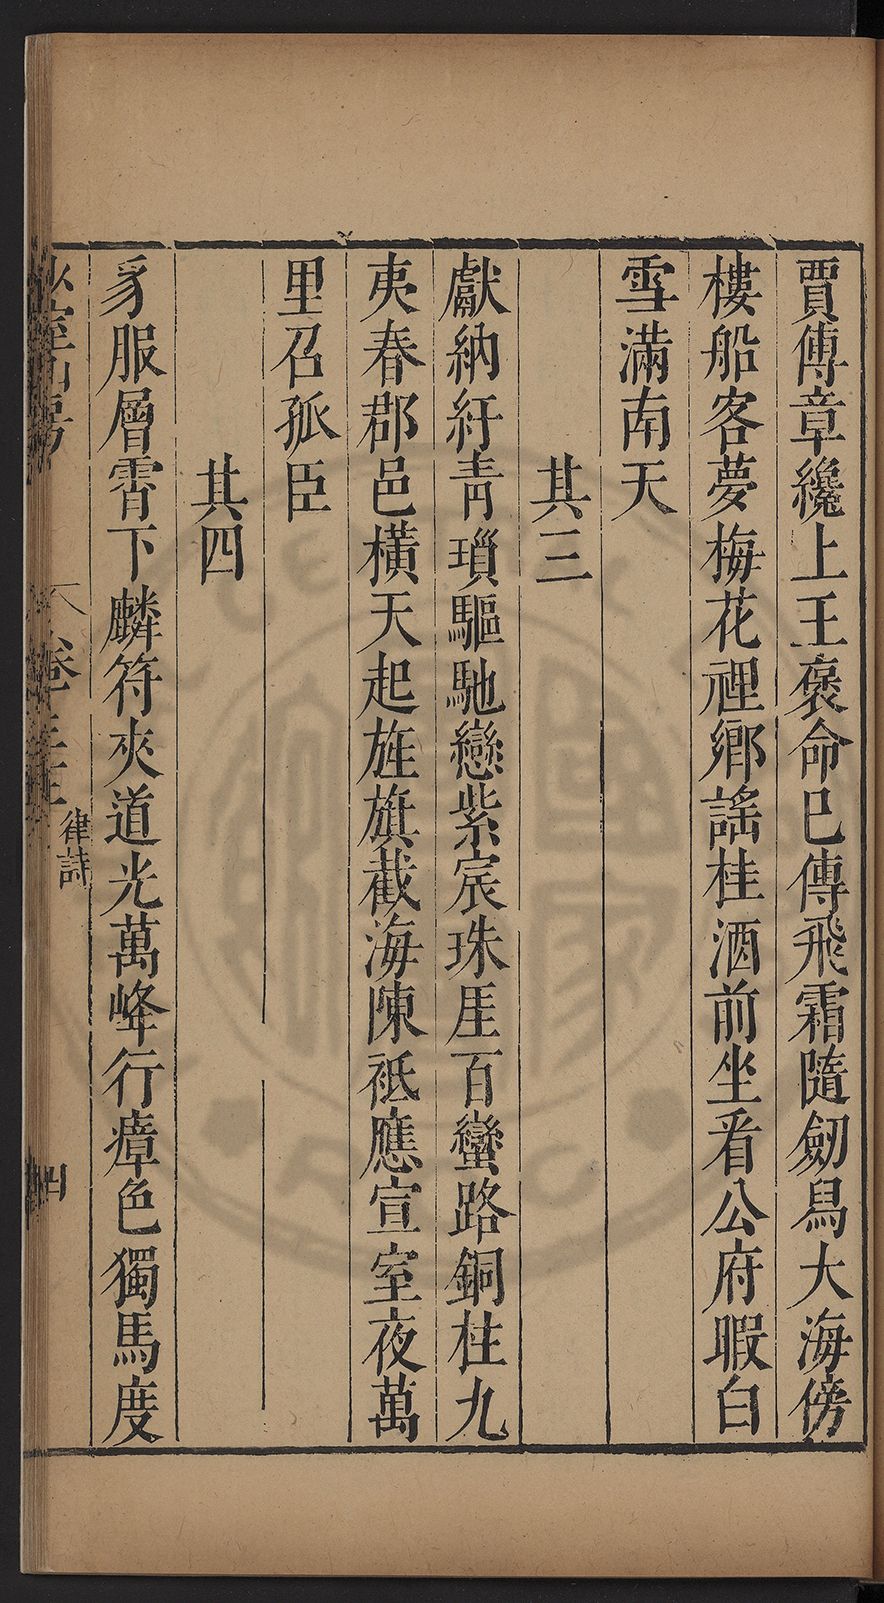 賈傅章纔上王褒命巳傳飛霜隨劒舄大海傍
樓船客夢梅花裡鄉謠桂酒前坐看公府暇白
雪滿南天
其三
獻納紆青瑣驅馳戀紫宸珠厓百蠻路銅柱九
夷春郡邑橫天起旌旗截海陳祗應宣室夜萬
里召孤臣
其四
豸服層霄下麟符夾道光萬峰行瘴色獨馬度
山房
卷三
律詩
四